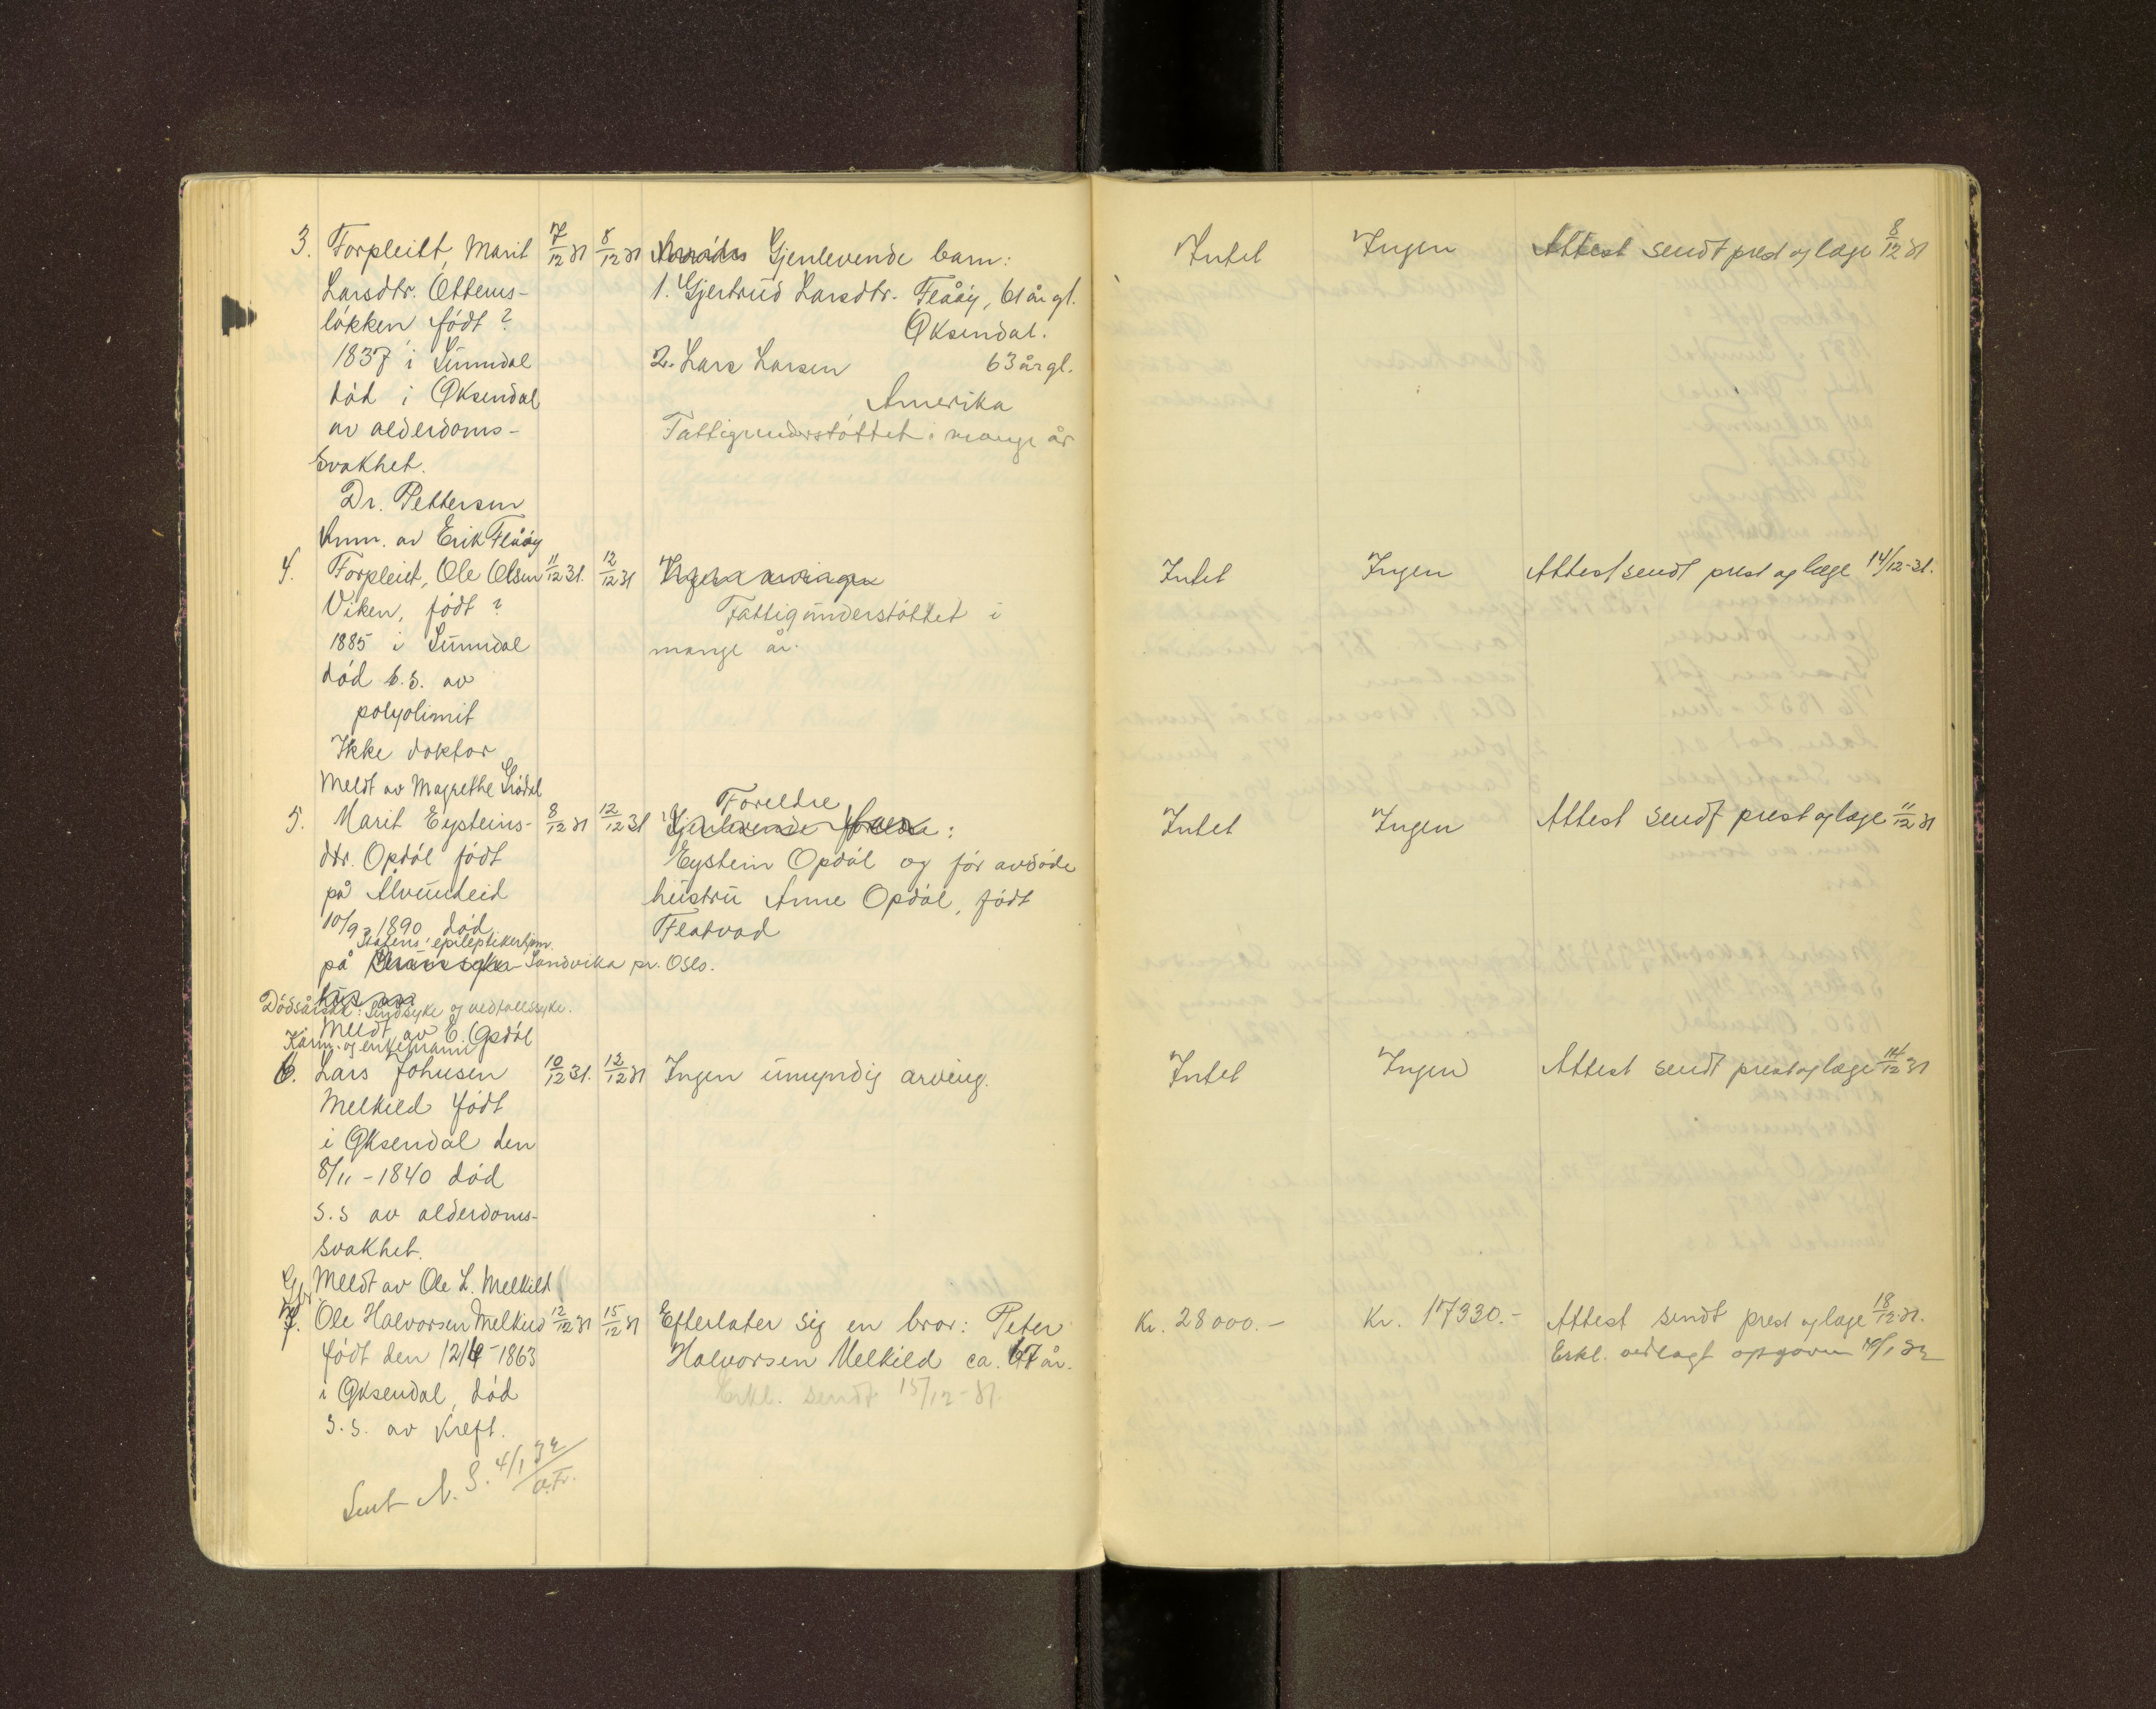 3. Forpleiet, Marit 7/12 31 8/12 31 Gjenlevende barn: Intet Ingen Attest sendt prest og læge 8/12 31
Larsdtr. Ottems- 1. Gjertrud Larsdtr. Flåøy, 61 år gl.
løkken født ? Øksendal.
1837 i Sunndal 2. Lars Larsen 63 år gl.
død i Øksendal Amerika
av alderdoms- Fattigunderstøttet i mange år
svakhet.
Dr. Pettersen
Anm. av Erik Flåøy
4. Forpleiet, Ole Olsen 11/12 31. 12/12 31 Intet Ingen Attest sendt prest og læge 14/12-31.
Viken, født ? Fattigunderstøttet i
1885 i Sunndal mange år.
død s.s. av
polyolimit
Ikke doktor
Meldt av Magrethe Grødal
Foreldre
5. Marit Eysteins- 8/12 31 12/12 31 Gjenlevende : Intet Ingen Attest sendt prest og læge 11/12 31
dtr. Opdøl født Eystein Opdøl og før avdøde
på Ålvundeid hustru Anne Opdøl, født
10/9-1890 død Flatvad
Statens epileptikerhjem.
på Sandvika pr. Oslo.
Dødsårsak: Sindsyke og nedfallssyke.
Meldt av E. Opdøl
Kårm. og enkemann
6. Lars Johnsen 10/12 31. 12/12 31 Ingen umyndig arving. Intet Ingen Attest sendt prest og læge 14/12 31
Melkild født
i Øksendal den
8/11-1840 død
s.s av alderdoms-
svakhet.
Meldt av Ole L. Melkild
Gbr.
7. Ole Halvorsen Melkild 12/12 31 15/12 31 Efterlater sig en bror: Peter Kr. 28000.- Kr. 17330.- Attest sendt prest og læge 18/12 31.
født den 12/4-1863 Halvorsen Melkild ca. 67 år. Erkl. vedlagt opgaven
i Øksendal, død Erkl. sendt 15/12-31
s.s. av kreft.
Sent N. S. 4/1 32
a.Fr.